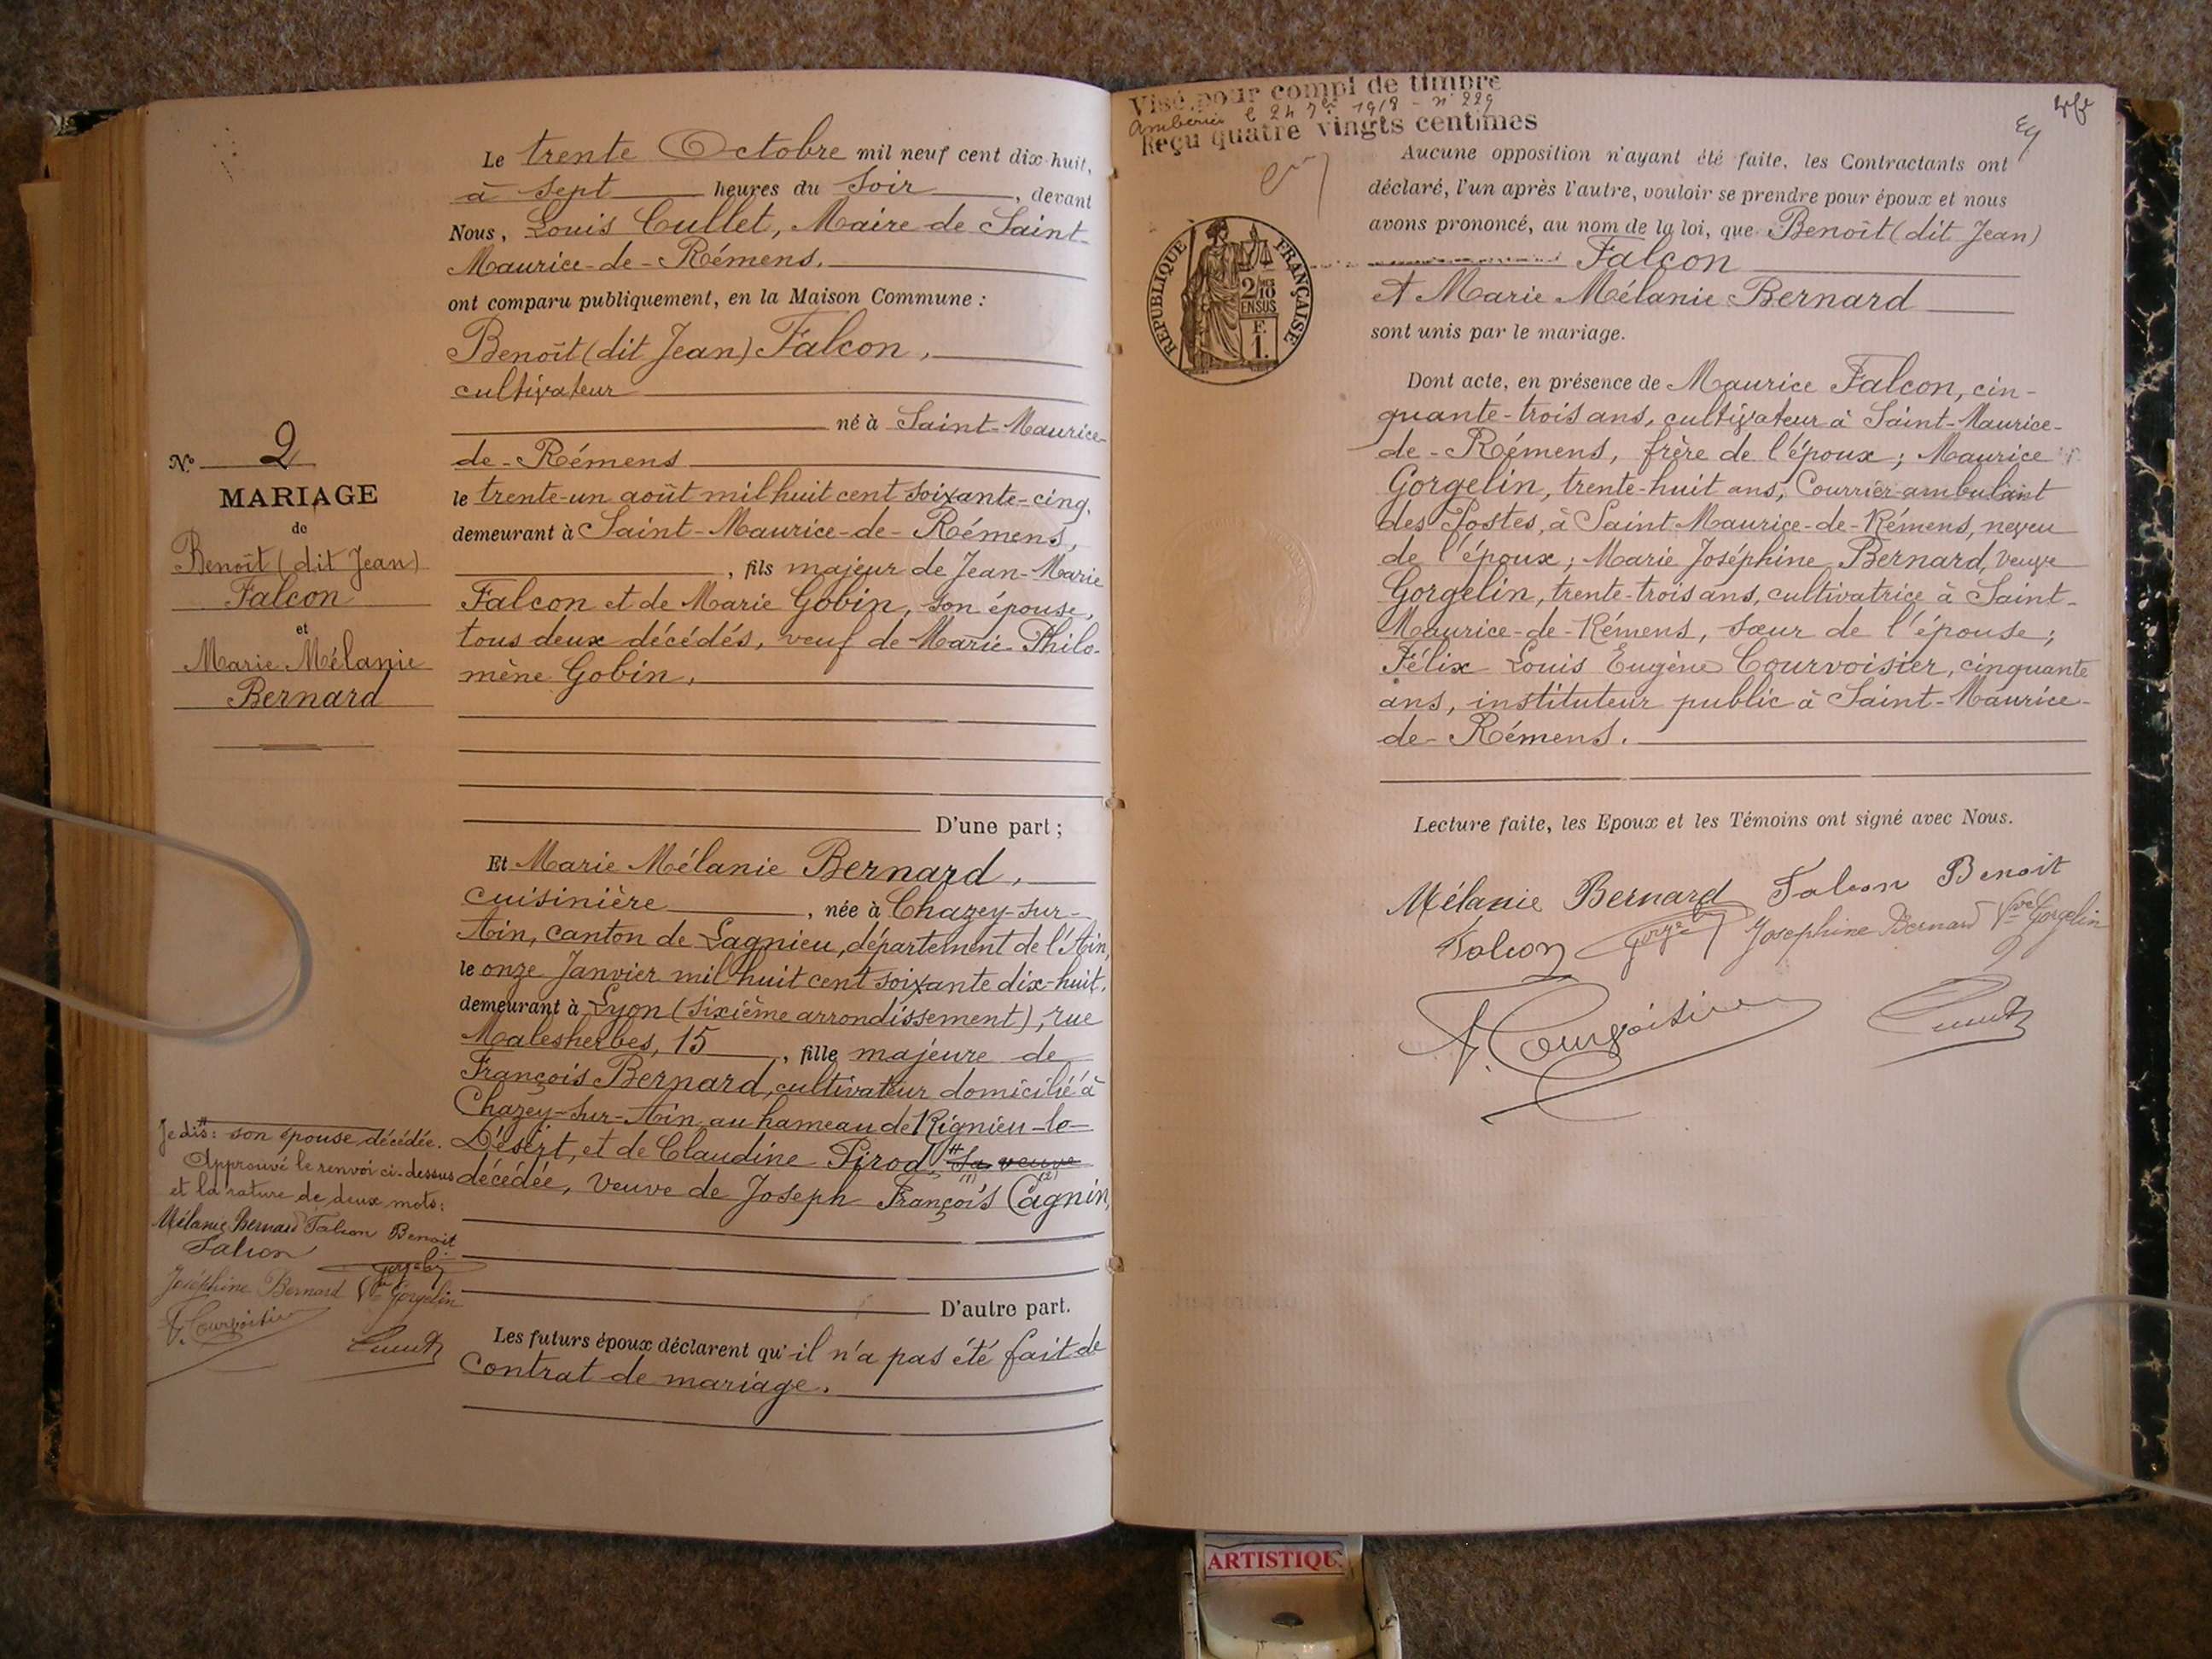 Le trente Octobre mil neuf cent dix-huit,
à sept heures du soir, devant
Nous, Louis Cullet, Maire de Saint-
Maurice-de-Rémens.
ont comparu publiquement, en la Maison Commune :
Benoît (dit Jean) Falcon,
cultivateur
né à Saint-Maurice-
de-Rémens
le trente-un août mil huit cent soixante-cinq,
demeurant à Saint-Maurice-de-Rémens,
, fils majeur de Jean-Marie
Falcon et de Marie Gobin, son épouse,
tous deux décédés, veuf de Marie-Philo-
mène Gobin,
D'une part ;
N° 2
MARIAGE
de
Benoît (dit Jean)
Falcon
et
Marie Mélanie
Bernard
Et Marie Mélanie Bernard,
cuisinière, née à Chazey-sur-
Ain, canton de Lagnieu, département de l'Ain,
le onze Janvier mil huit cent soixante dix-huit,
demeurant à Lyon (sixième arrondissement), rue
Malesherbes, 15, fille majeure de
François Bernard, cultivateur domicilié à
Chazey-sur-Ain au hameau de Rignieu-le-
Désert, et de Claudine Pirod, # sa veuve
décédée, veuve de Joseph François Cagnin,
D'autre part.
Les futurs époux déclarent qu'il n'a pas été fait de
contrat de mariage.
Je dis : # son épouse décédée.
Approuvé le renvoi ci-dessus
et la rature de deux mots :
Mélanie Bernard Falcon Benoit
Falcon
Gorgelin
Joséphine Bernard Vve Gorgelin
F. Courvoisier
Cullet
Visé pour compl de timbre
Ambérieu le 24 7bre 1918 - n° 229
Reçu quatre vingts centimes
REPUBLIQUE FRANÇAISE
2/10
EN SUS
F.
1.
Aucune opposition n'ayant été faite, les Contractants ont
déclaré, l'un après l'autre, vouloir se prendre pour époux et nous
avons prononcé, au nom de la loi, que Benoît (dit Jean)
Falcon
et Marie Mélanie Bernard
sont unis par le mariage.
Dont acte, en présence de Maurice Falcon, cin-
quante-trois ans, cultivateur à Saint-Maurice-
de-Rémens, frère de l'époux ; Maurice
Gorgelin, trente-huit ans, Courrier-ambulant
des Postes, à Saint Maurice-de-Rémens, neveu
de l'époux ; Marie Joséphine Bernard, veuve
Gorgelin, trente-trois ans, cultivatrice à Saint-
Maurice-de-Rémens, sœur de l'épouse ;
Félix Louis Eugène Courvoisier, cinquante
ans, instituteur public à Saint-Maurice-
de-Rémens.
Lecture faite, les Epoux et les Témoins ont signé avec Nous.
Mélanie Bernard Falcon Benoit
Falcon Josephine Bernard Vve Gorgelin
F. Courvoisier Cullet
ARTISTIQU